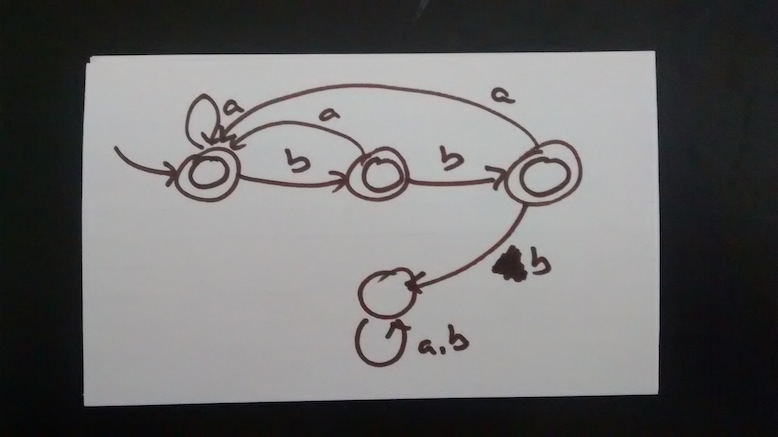 a
a
a
b
b
b
a,b